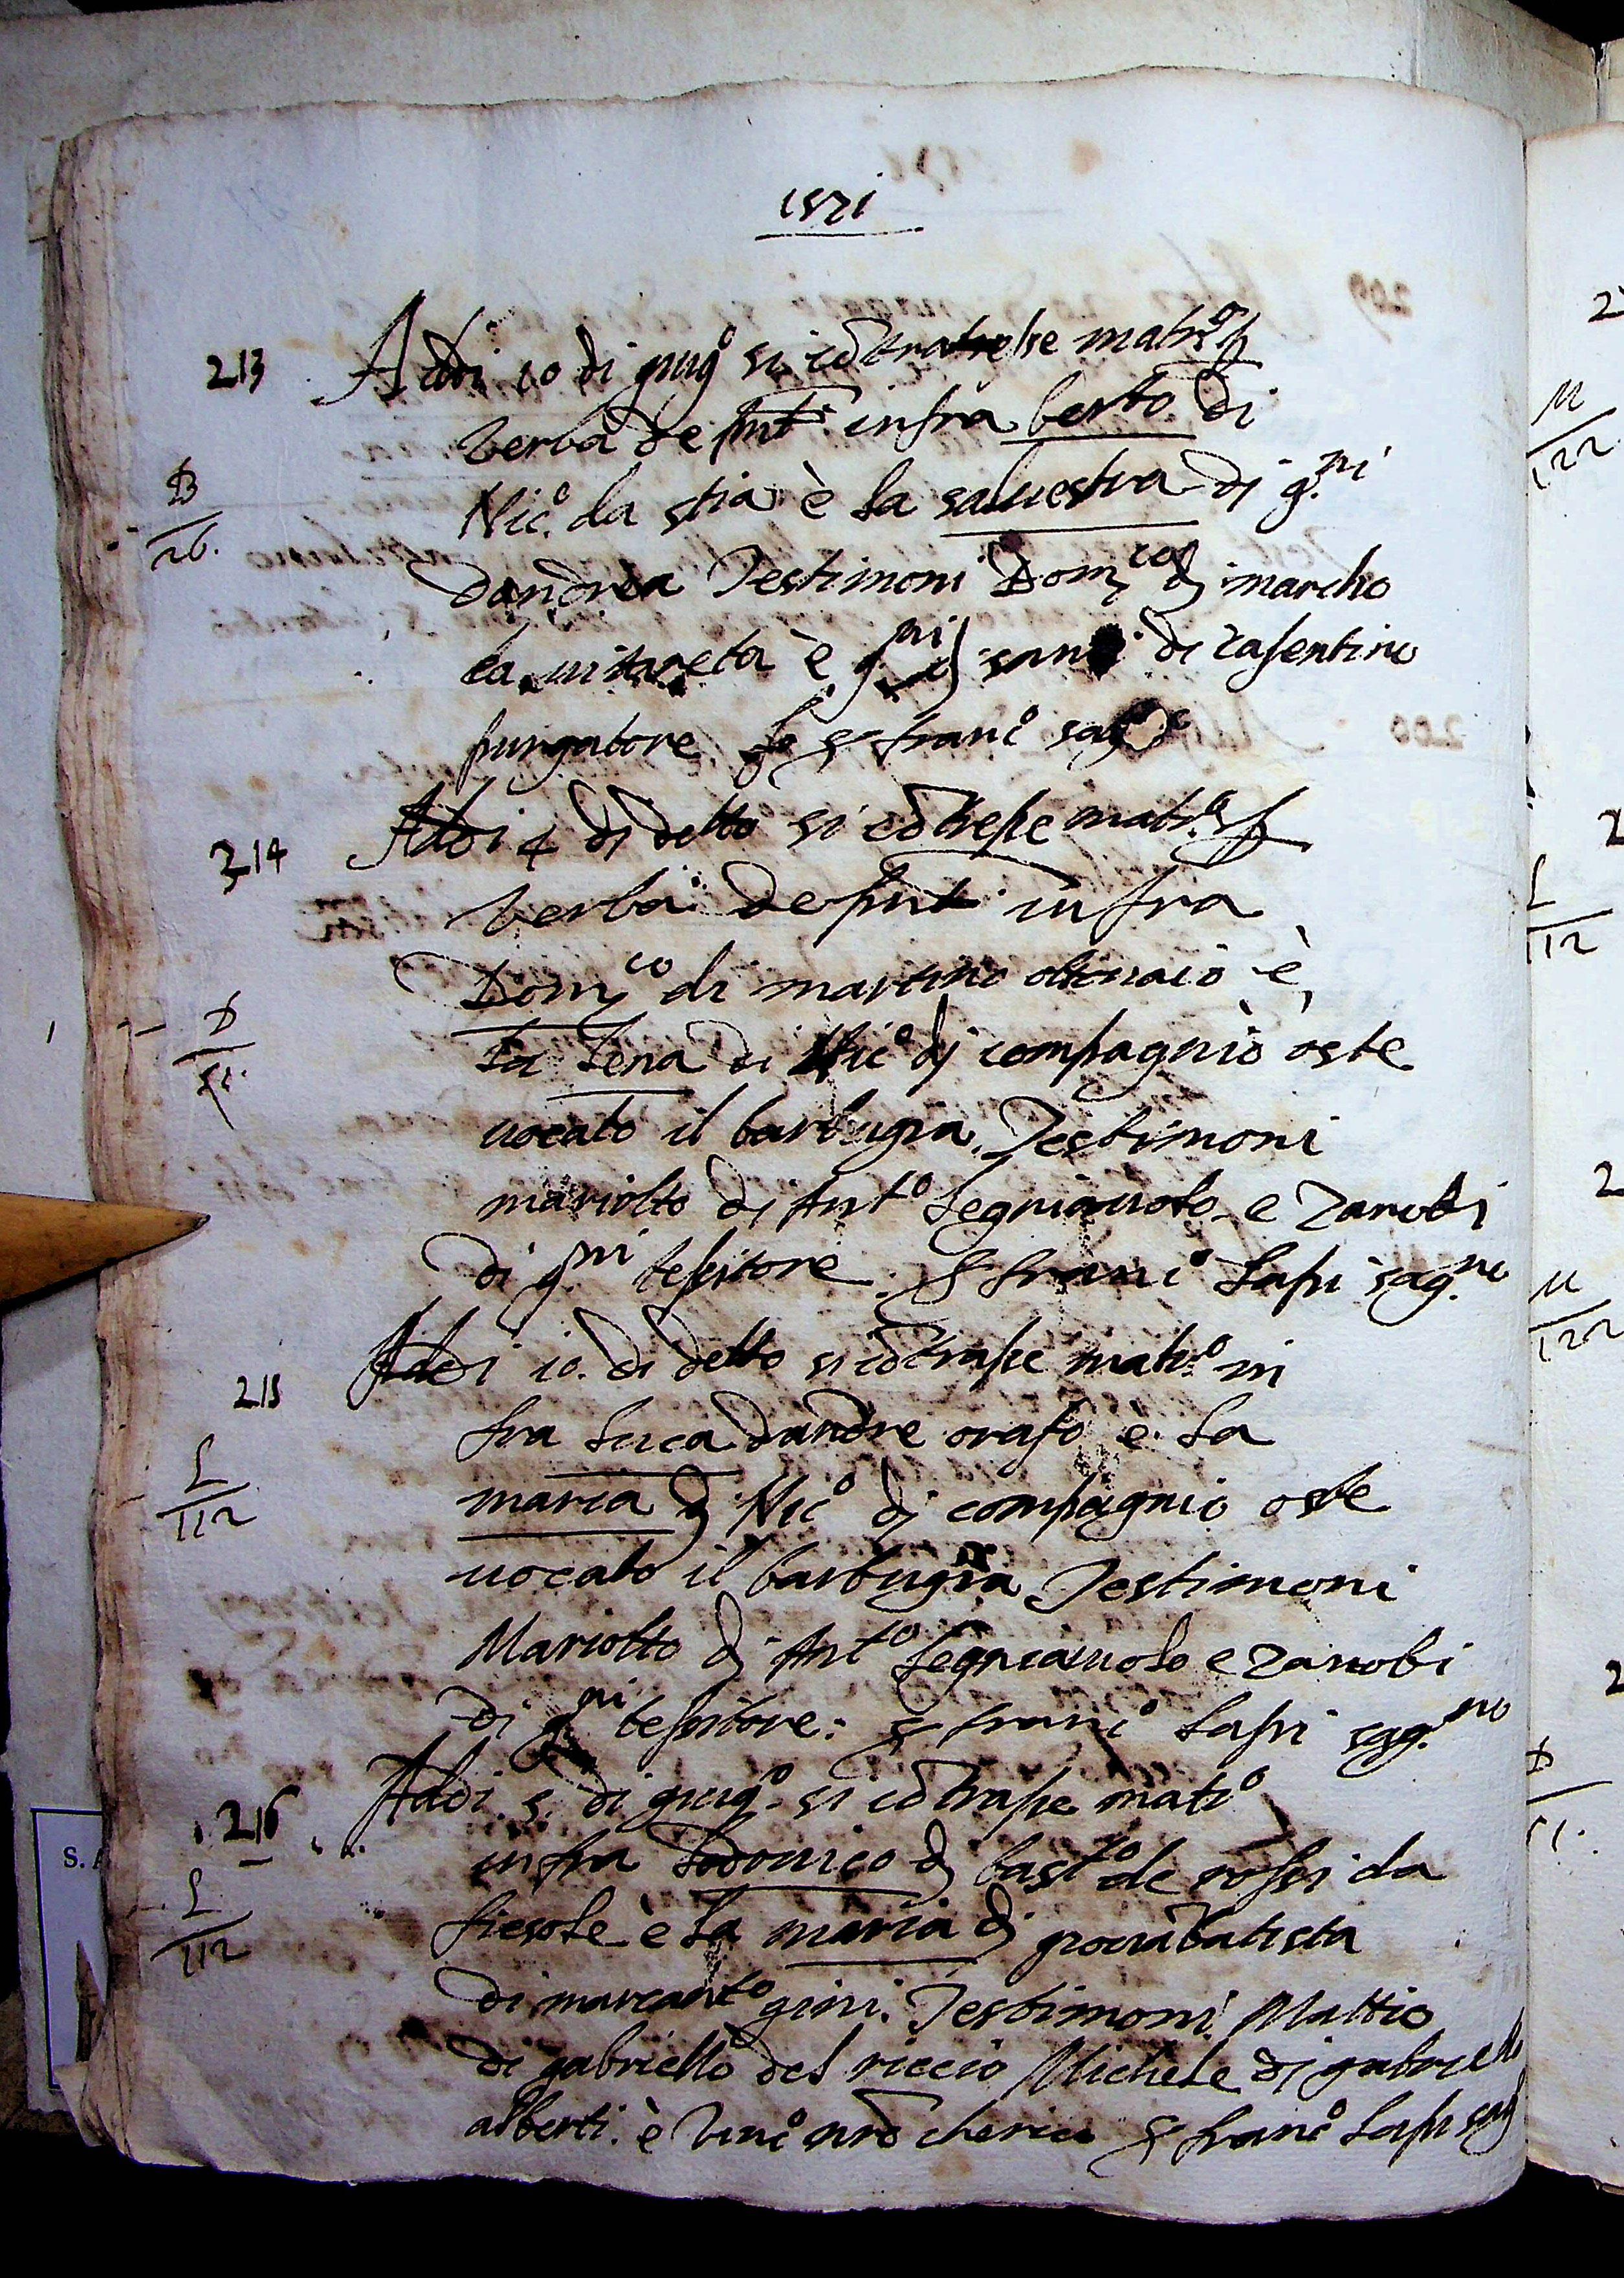 1571
213 Addi 10 di giug.o si cōtratresse matr.o p
verba de pnti infra berto di
B
26.
Nic.o da stia è la saluestra di g.ni
dandrea Testimoni Dom.co di marcho
è g.ni di santi di casentino
purgatore fran.o sag
214 Addi 4 di detto si cōtresse matr.o p
verba de pnti infra
Dom.co di martino ottonaio è
D
51.
la Lena di Nic.o di compagnio oste
uocato il barbugia Testimoni
mariotto di Ant.o legniaiuolo e zanobi
di g.ni tessitore. S fran.o Lapi sag.no
215 Addi 10. di detto si cōtrasse matr.o in
fra Luca dandre orafo e la
L
112
maria di Nic.o di compagnio oste
uocato il barbugia Testimoni
Mariotto di Ant.o legniaiuolo e zanobi
di g.ni tessitore: S fran.o Lapi sag.no
216 Addi 5. di giug.o si cōtrasse mat.o
infra Lodouico di bast.o de rossi da
L
112
fiesole è la maria di giouābatista
di marcant.o gini. Testimoni Mattio
di gabriello del riccio Michele di gabriello
alberti. è Vinc.o nrō cherico S fran.o Lapi sag